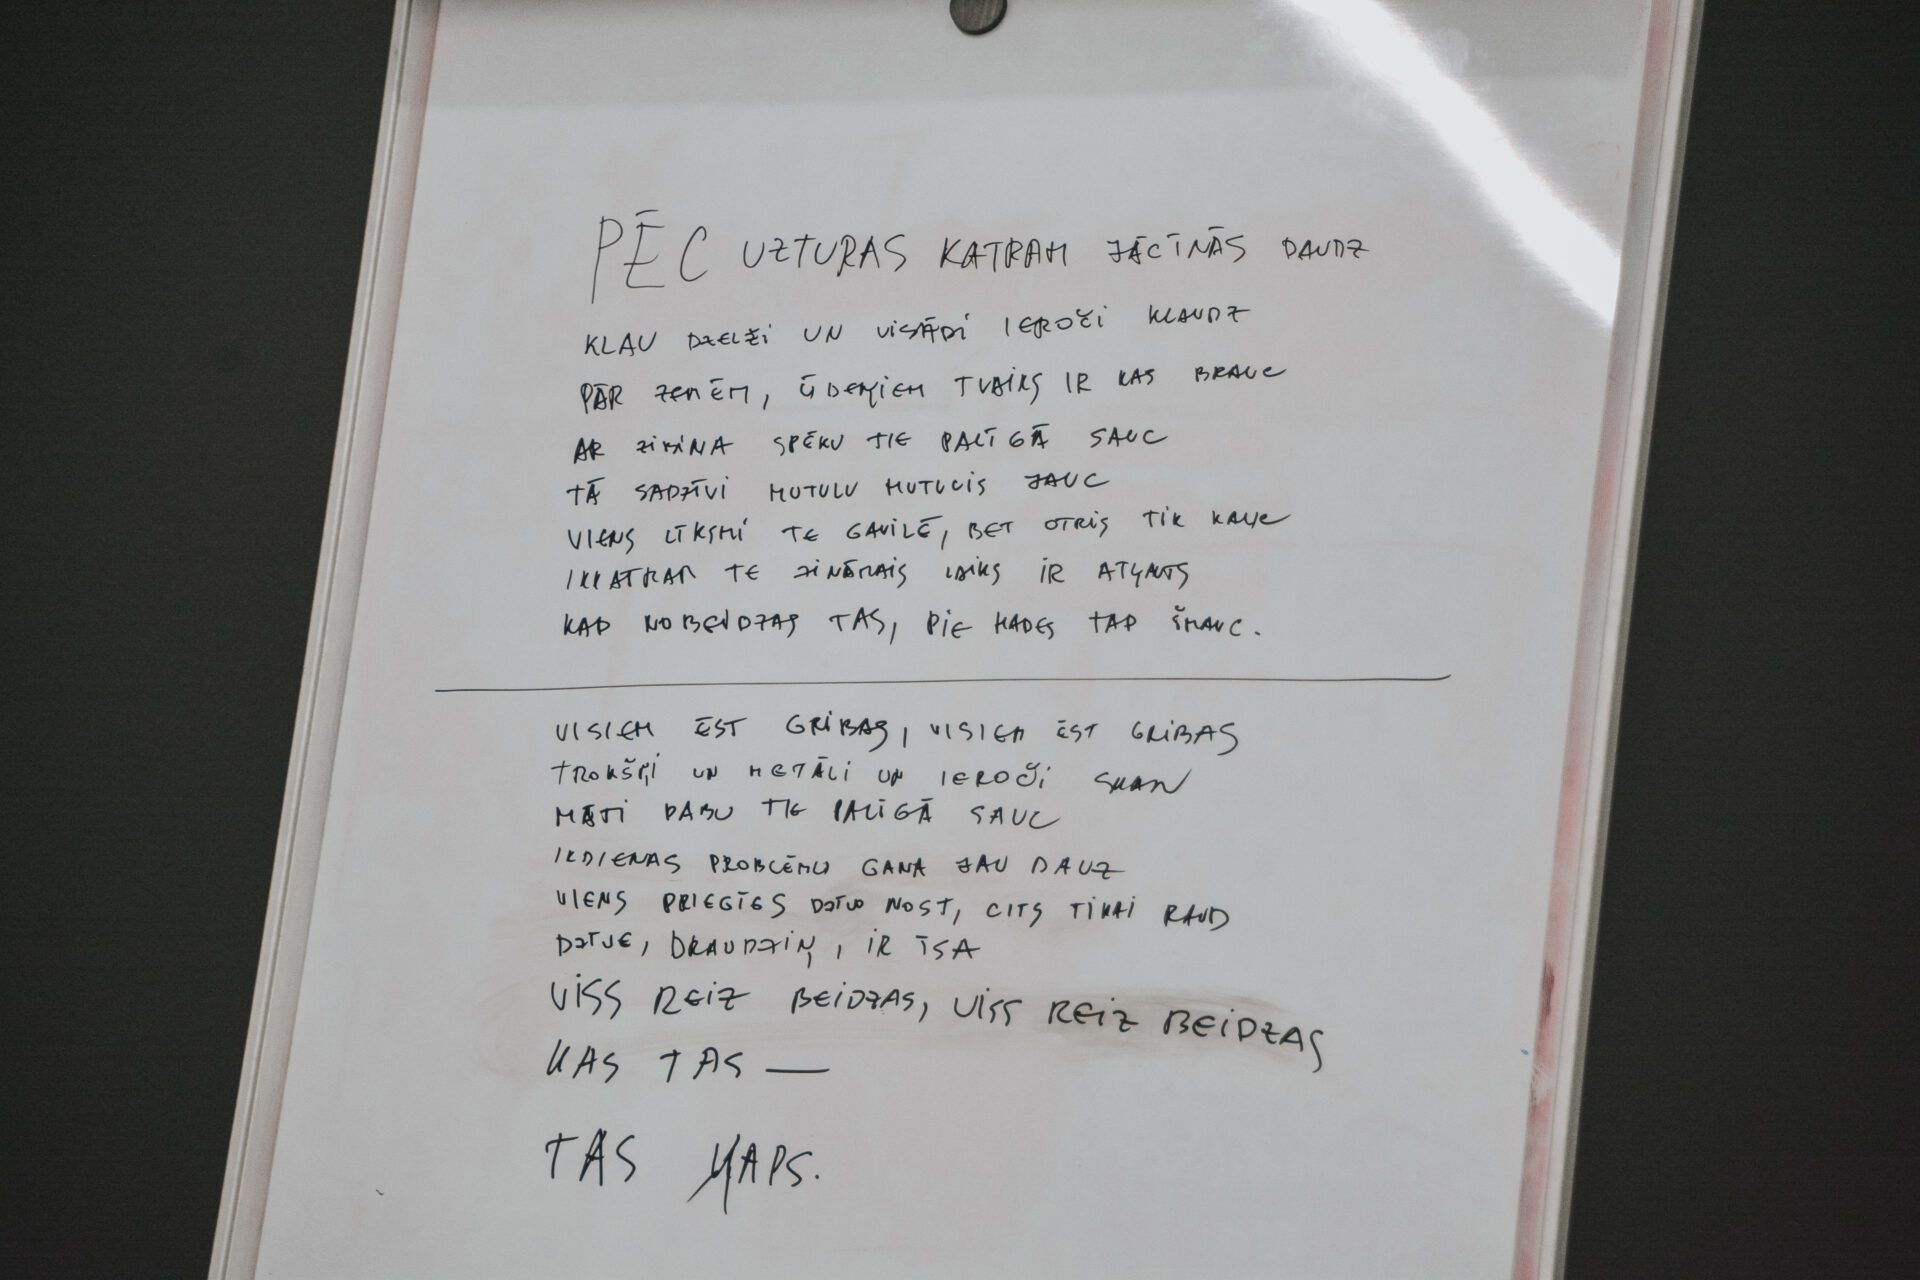 PĒC UZTURAS KATRAM JĀCĪNĀS DAUDZ
KLAU DZELŽI UN VISĀDI IEROČI KLAUDZ
PĀR ZEMĒM, ŪDEŅIEM TVAIKS IR KAS BRAUC
AR SPĒKU TIE PALĪGĀ SAUC
TĀ SADZĪVI MUTUĻU MUTULIS JAUC
VIENS LĪKSMI TE GAVILĒ, BET OTRIS TIK KAUC
IKKATRAM TE ZINĀMAIS LAIKS IR ATĻAUTS
KAD NOBEIDZAS TAS, PIE HADES TAP ŠMAUC.
VISIEM ĒST GRIBAS, VISIEM ĒST GRIBAS
TROKŠŅI UN METĀLI UN IEROČI SKAN
MĀTI DABU TIE PALĪGĀ SAUC
IKDIENAS PROBLĒMU GANA JAU DAUZ
VIENS PRIECĪGS DZĪVO NOST, CITS TIKAI RAUD
DZĪVE, DRAUDZIŅ, IR ĪSA
VISS REIZ BEIDZAS, VISS REIZ BEIDZAS
KAS TAS —
TAS KAPS.